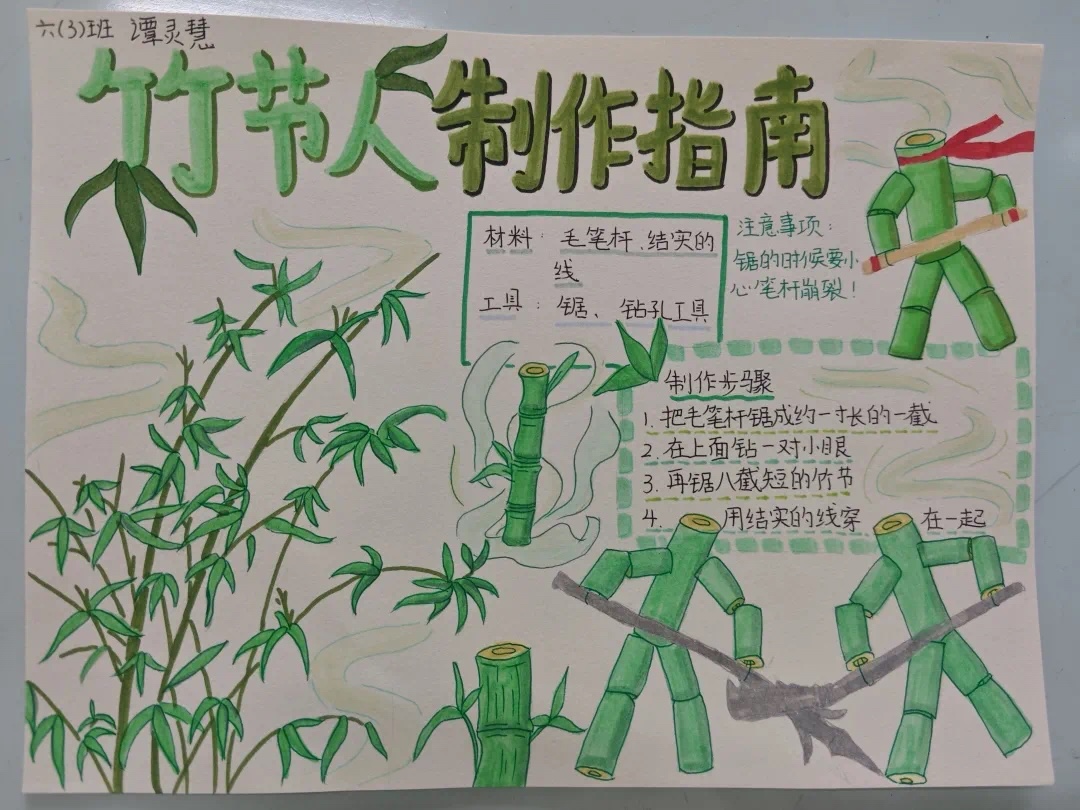 六(3)班 谭灵慧
竹节人制作指南
材料：毛笔杆、结实的
线
工具：锯、钻孔工具
注意事项：
锯的时候要小
心笔杆崩裂！
制作步骤
1. 把毛笔杆锯成约一寸长的一截
2. 在上面钻一对小眼
3. 再锯八截短的竹节
4. 用结实的线穿在一起